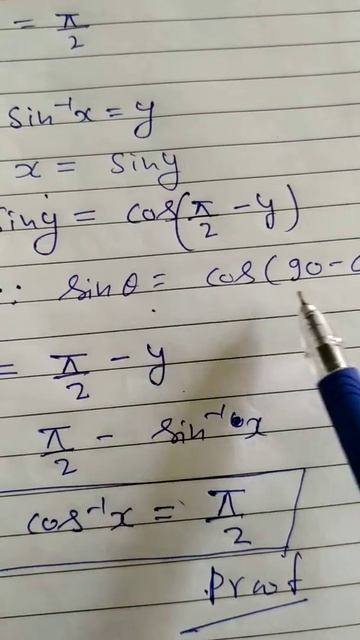 = π/2
sin⁻¹x = y
x = sin y
sin y = cos(π/2 - y)
∵ sin θ = cos(90 -
= π/2 - y
π/2 - sin⁻¹x
cos⁻¹x = π/2
Proof